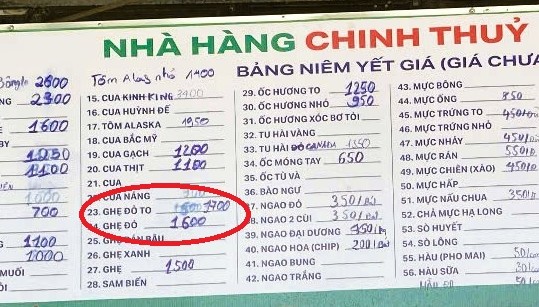 NHÀ HÀNG CHINH THUỶ
BẢNG NIÊM YẾT GIÁ (GIÁ CHƯA
2600
2300
1600
BY
1100
700
1100
1000
MUỐI
Tôm Alas nhỏ 1400
15. CUA KINH KING 3400
16. CUA HUỲNH ĐẾ
17. TÔM ALASKA 1950
18. CUA BẮC MỸ
19. CUA GẠCH 1200
20. CUA THỊT 1100
21. CUA
CUA NÀNG
23. GHẸ ĐỎ TO 1700
GHẸ ĐỎ 1600
25. GHẸ
26. GHẸ XANH
27. GHẸ 1500
28. SAM BIỂN
29. ỐC HƯƠNG TO 1250
30. ỐC HƯƠNG NHỎ 950
31. ỐC HƯƠNG XÓC BƠ TỎI
32. TU HÀI VÀNG
33. TU HÀI ĐỎ CANADA 1350
34. ỐC MÓNG TAY 650
35. ỐC TÙ VÀ
36. BÀO NGƯ
37. NGAO ĐỎ 350/
38. NGAO 2 CÙI 350/
39. NGAO ĐẠI DƯƠNG 450/
40. NGAO HOA (CHIP) 200/
41. NGAO BUNG
42. NGAO TRẮNG
43. MỰC BÔNG
44. MỰC ỐNG 850
45. MỰC TRỨNG TO 450/
46. MỰC TRỨNG NHỎ
47. MỰC NHÁY 450/
48. MỰC RÁN 550/
49. MỰC CHIÊN (XÀO) 450
50. MỰC HẤP
51. MỰC NẤU CHUA 350/
52. CHẢ MỰC HẠ LONG
53. SÒ HUYẾT
54. SÒ LÔNG
55. HÀU (PHO MAI) 50/
56. HÀU SỮA 30/